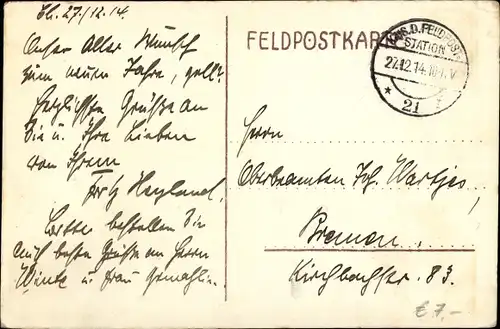 Bh. 27/12.14.
Unser Aller Wunsch
zum neuen Jahre, gell?
Herzlichste Grüsse an
Sie u. Ihre Lieben
von Ihrem
Fritz Heyland.
Bitte bestellen Sie
auch beste Grüsse an Herrn
u. Frau Gemahlin.
FELDPOSTKARTE
K.D.FELDPOST
STATION
27.12.14.10-11.V
* 21 *
Herrn
Oberbeamten Joh. Wartjes,
Bremen.
Kirchbachstr. 83.
€ 7,-